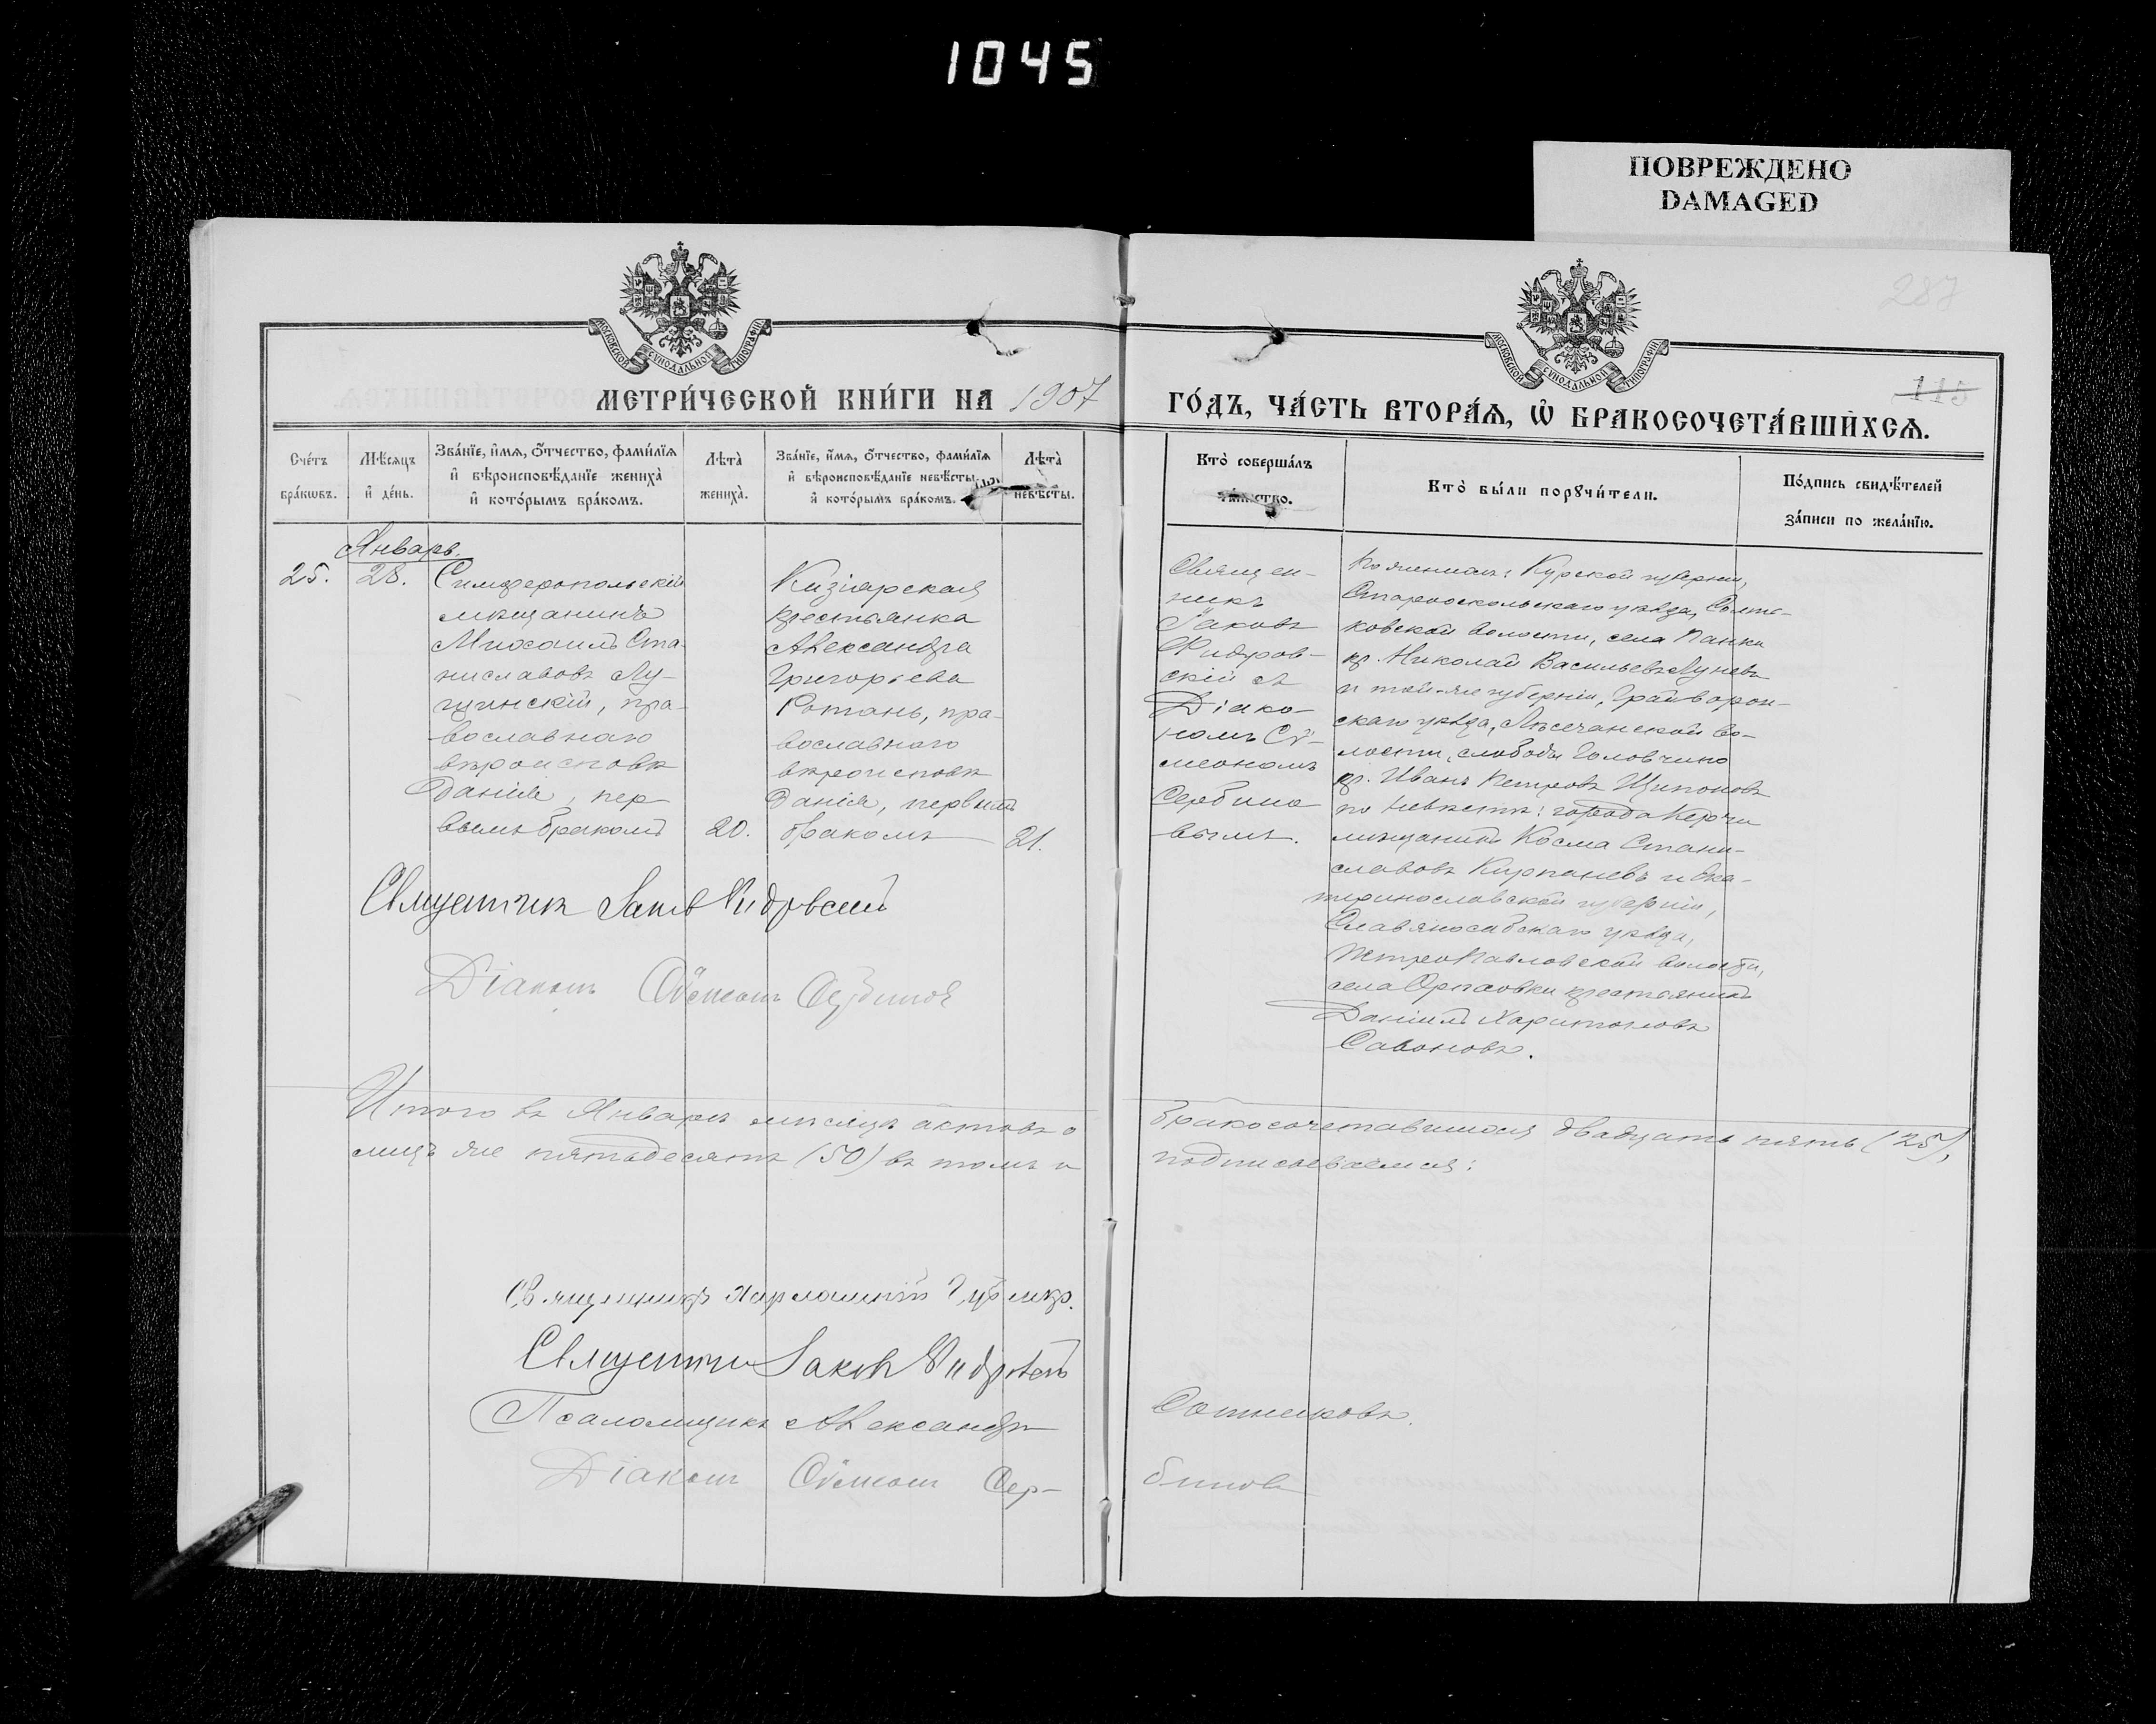 1045
ПОВРЕЖДЕНО
DAMAGED
287
115
МОСКОВСКОЙ СУНОДАЛЬНОЙ ТИПОГРАФІИ
МОСКОВСКОЙ СУНОДАЛЬНОЙ ТИПОГРАФІИ
МЕТРИ́ЧЕСКОЙ КНИ́ГИ НА 1907
ГО́ДЪ, ЧА́СТЬ ВТОРА́Ѧ, Ѡ҆ БРАКОСОЧЕТА́ВШИХСѦ.
Сче́тъ
бра́кѡвъ.
Мѣ́сѧцъ
и҆ де́нь.
Зва́нїе, и҆́мѧ, ѻ҆́тчество, фами́лїѧ
и҆ вѣроисповѣ́данїе жениха̀
и҆ кото́рымъ бра́комъ.
Лѣта̀
жениха̀.
Зва́нїе, и҆́мѧ, ѻ҆́тчество, фами́лїѧ
и҆ вѣроисповѣ́данїе невѣ́сты,
и҆ кото́рымъ бра́комъ.
Лѣта̀
невѣ́сты.
Кто̀ соверша́лъ
та́инство.
Кто̀ бы́ли порꙋчи́тели.
По́дпись свидѣ́телей
за́писи по жела́нїю.
Январь.
25.
28.
Симферопольскій
мѣщанинъ
Михаилъ Ста-
ниславовъ Лу-
щинскій, пра-
вославнаго
вѣроисповѣ
данія, пер
вымъ бракомъ
20.
Кизіярская
крестьянка
Александра
Григорьева
Ротань, пра-
вославнаго
вѣроисповѣ
данія, первымъ
бракомъ
21.
Священ-
никъ
Іаковъ
Фидров-
скій съ
Діако-
номъ Сѵ-
меономъ
Сербино
вымъ.
По женихѣ: Курской губерніи,
Старооскольскаго уѣзда,
ковской волости, села Панки
кр. Николай Васильевъ Луневъ
и той-же губерніи, Грайворон-
скаго уѣзда, Лисичанской во-
лости, слободы Головчино
кр. Иванъ Петровъ Щипоновъ
по невѣстѣ: города Керчи
мѣщанинъ Косма Стани-
славовъ Кирпаневъ и Ека-
теринославской губерніи,
Славяносербскаго уѣзда,
Петропавловской волости,
села крестьянинъ
Даніилъ Харитоновъ
Савоновъ.
Священникъ Іаковъ Фидровскій
Діаконъ Сѵмеонъ Сербиновъ
Итого въ Январѣ мѣсяцѣ актовъ о
бракосочетавшихся двадцать пять (25),
лицъ же пятьдесятъ (50) въ томъ и
подписываемся:
Священникъ Харлампій
Священникъ Іаковъ Фидровскій
Псаломщикъ Александръ
Сотниковъ.
Діаконъ Сѵмеонъ Сер-
биновъ